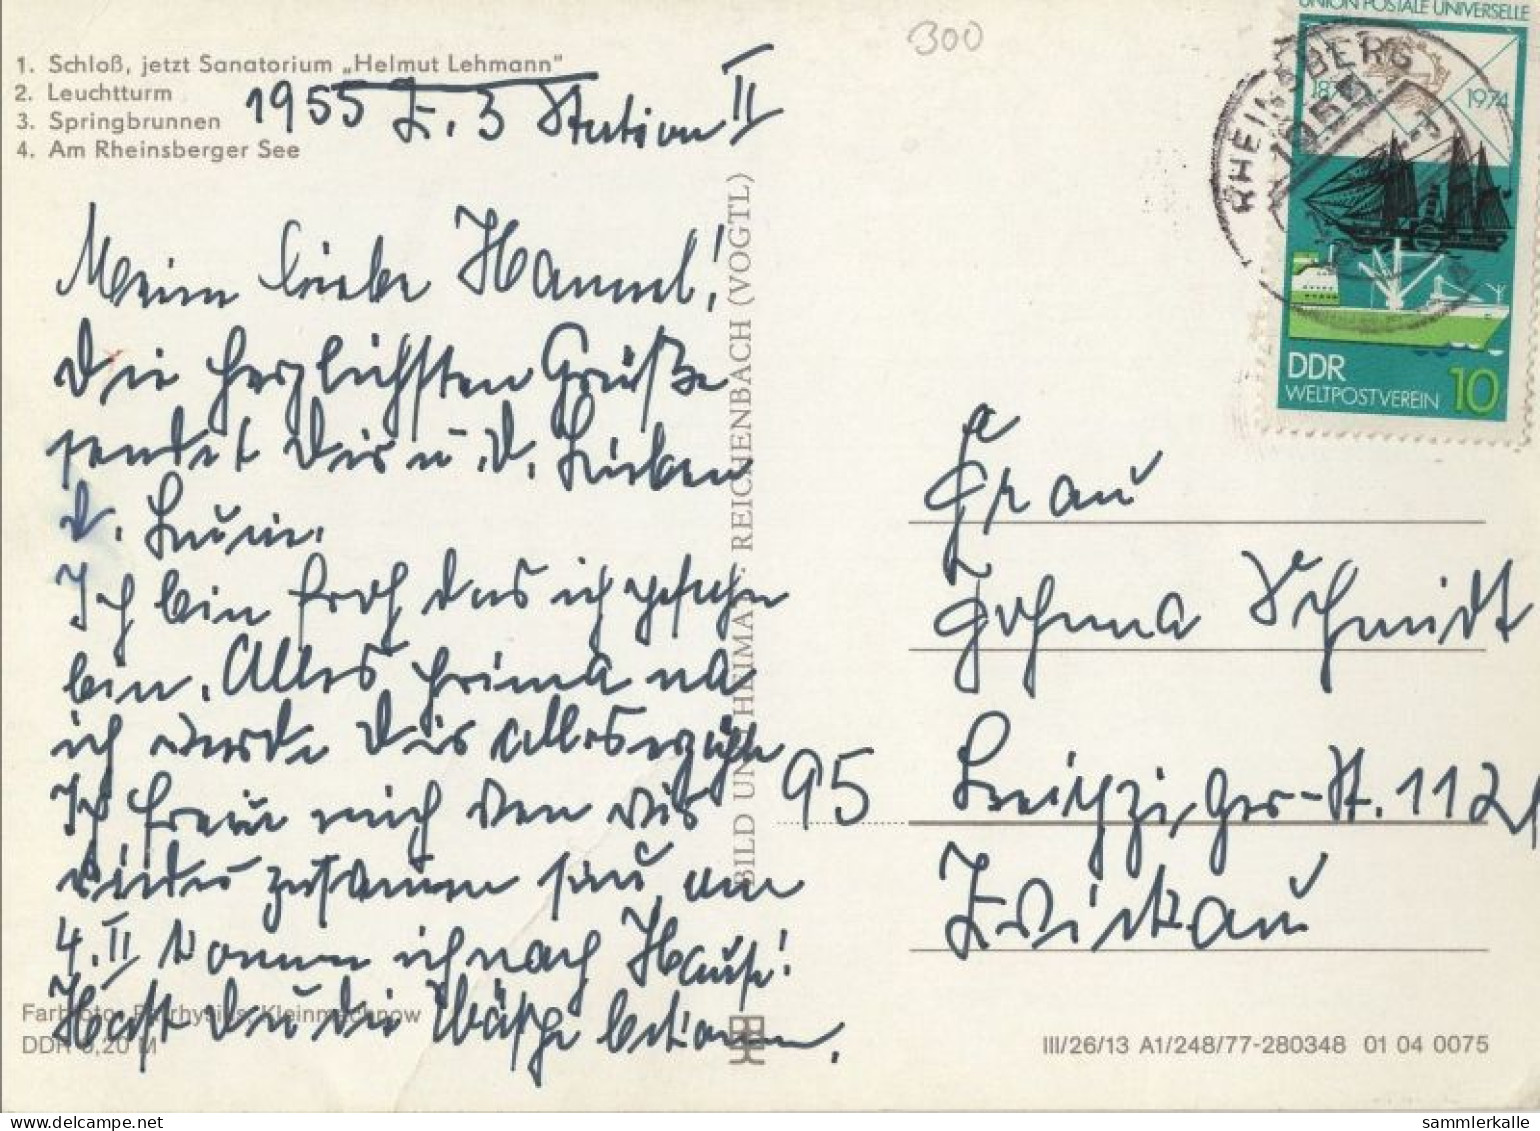 300
UNION POSTALE UNIVERSELLE
1974
RHEINSBERG
1955
DDR
WELTPOSTVEREIN 10
1. Schloß, jetzt Sanatorium „Helmut Lehmann"
2. Leuchtturm
3. Springbrunnen
4. Am Rheinsberger See
1955 Z. 3 Station II
Mein liebe Hannel!
Die herzlichsten Grüße
sendet Dir u. D. Lieben
D.
Ich bin froh das ich gefahrn
bin. Alles prima na
ich werde Dir alles erzähln
Ich freue mich wen wir
wieder zusammen sein am
4. II komm ich nach Hause!
Hast Du die Wäsche bekommen.
BILD UND HEIMAT REICHENBACH (VOGTL)
Frau
Johnna Schmidt
95 Leipziger-St. 112
Zwickau
Kleinmachnow
DDR 0,20 M
III/26/13 A1/248/77-280348 01 04 0075
sammlerkalle.com